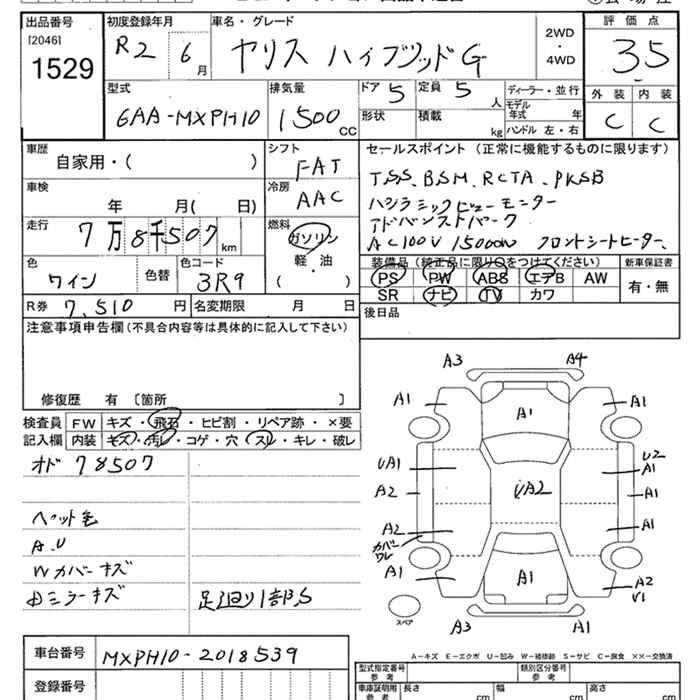 出品番号 初度登録年月 車名・グレード 評価点
[2046] 1529
R2 6月 ヤリス ハイブリッドG 2WD・4WD 3.5
型式 排気量 ドア 5 定員 5人 ディーラー・並行 外装 内装
6AA-MXPH10 1500CC 形状 積載 kg モデル年式 年 C C
ハンドル 左・右
車歴 シフト セールスポイント (正常に機能するものに限ります)
自家用・( ) FAT TSS、BSM、RCTA、PKSB
車検 冷房
年 月( 日) AAC
走行 燃料 アドバンストパーク
7万8千507km ガソリン AC100V 1500W フロントシートヒーター、
軽・油
色 色替 色コード ( ) 装備品 (純正品に限り○をつけてください) 新車保証書
ワイン 3R9 PS PW ABS エアB AW 有・無
SR ナビ TV カワ
R券 7,510円 名変期限 月 日 後日品
注意事項申告欄(不具合内容等は具体的に記入して下さい)
修復歴 有 〔箇所 〕
検査員 FW キズ・飛石・ヒビ割・リペア跡・×要
記入欄 内装 キズ・汚レ・コゲ・穴・スレ・キレ・破レ
オド 78507
ペット毛
A.U
Wカバーキズ
内ミラーキズ 足廻り1部S
A3 A4
A1 A1 A1
UA1 U2 A1
A2 UA2 A1
A2 A1
カバーワレ
A1 A1 A2 U1
スペア A3 A1
A-キズ E-エクボ U-凹み W-補修跡 S-サビ C-腐食 ××-交換済
車台番号 MXPH10-2018539
登録番号
型式指定番号 参考 類別区分番号 参考
車庫証明用 参考 長さ cm 幅 cm 高さ cm